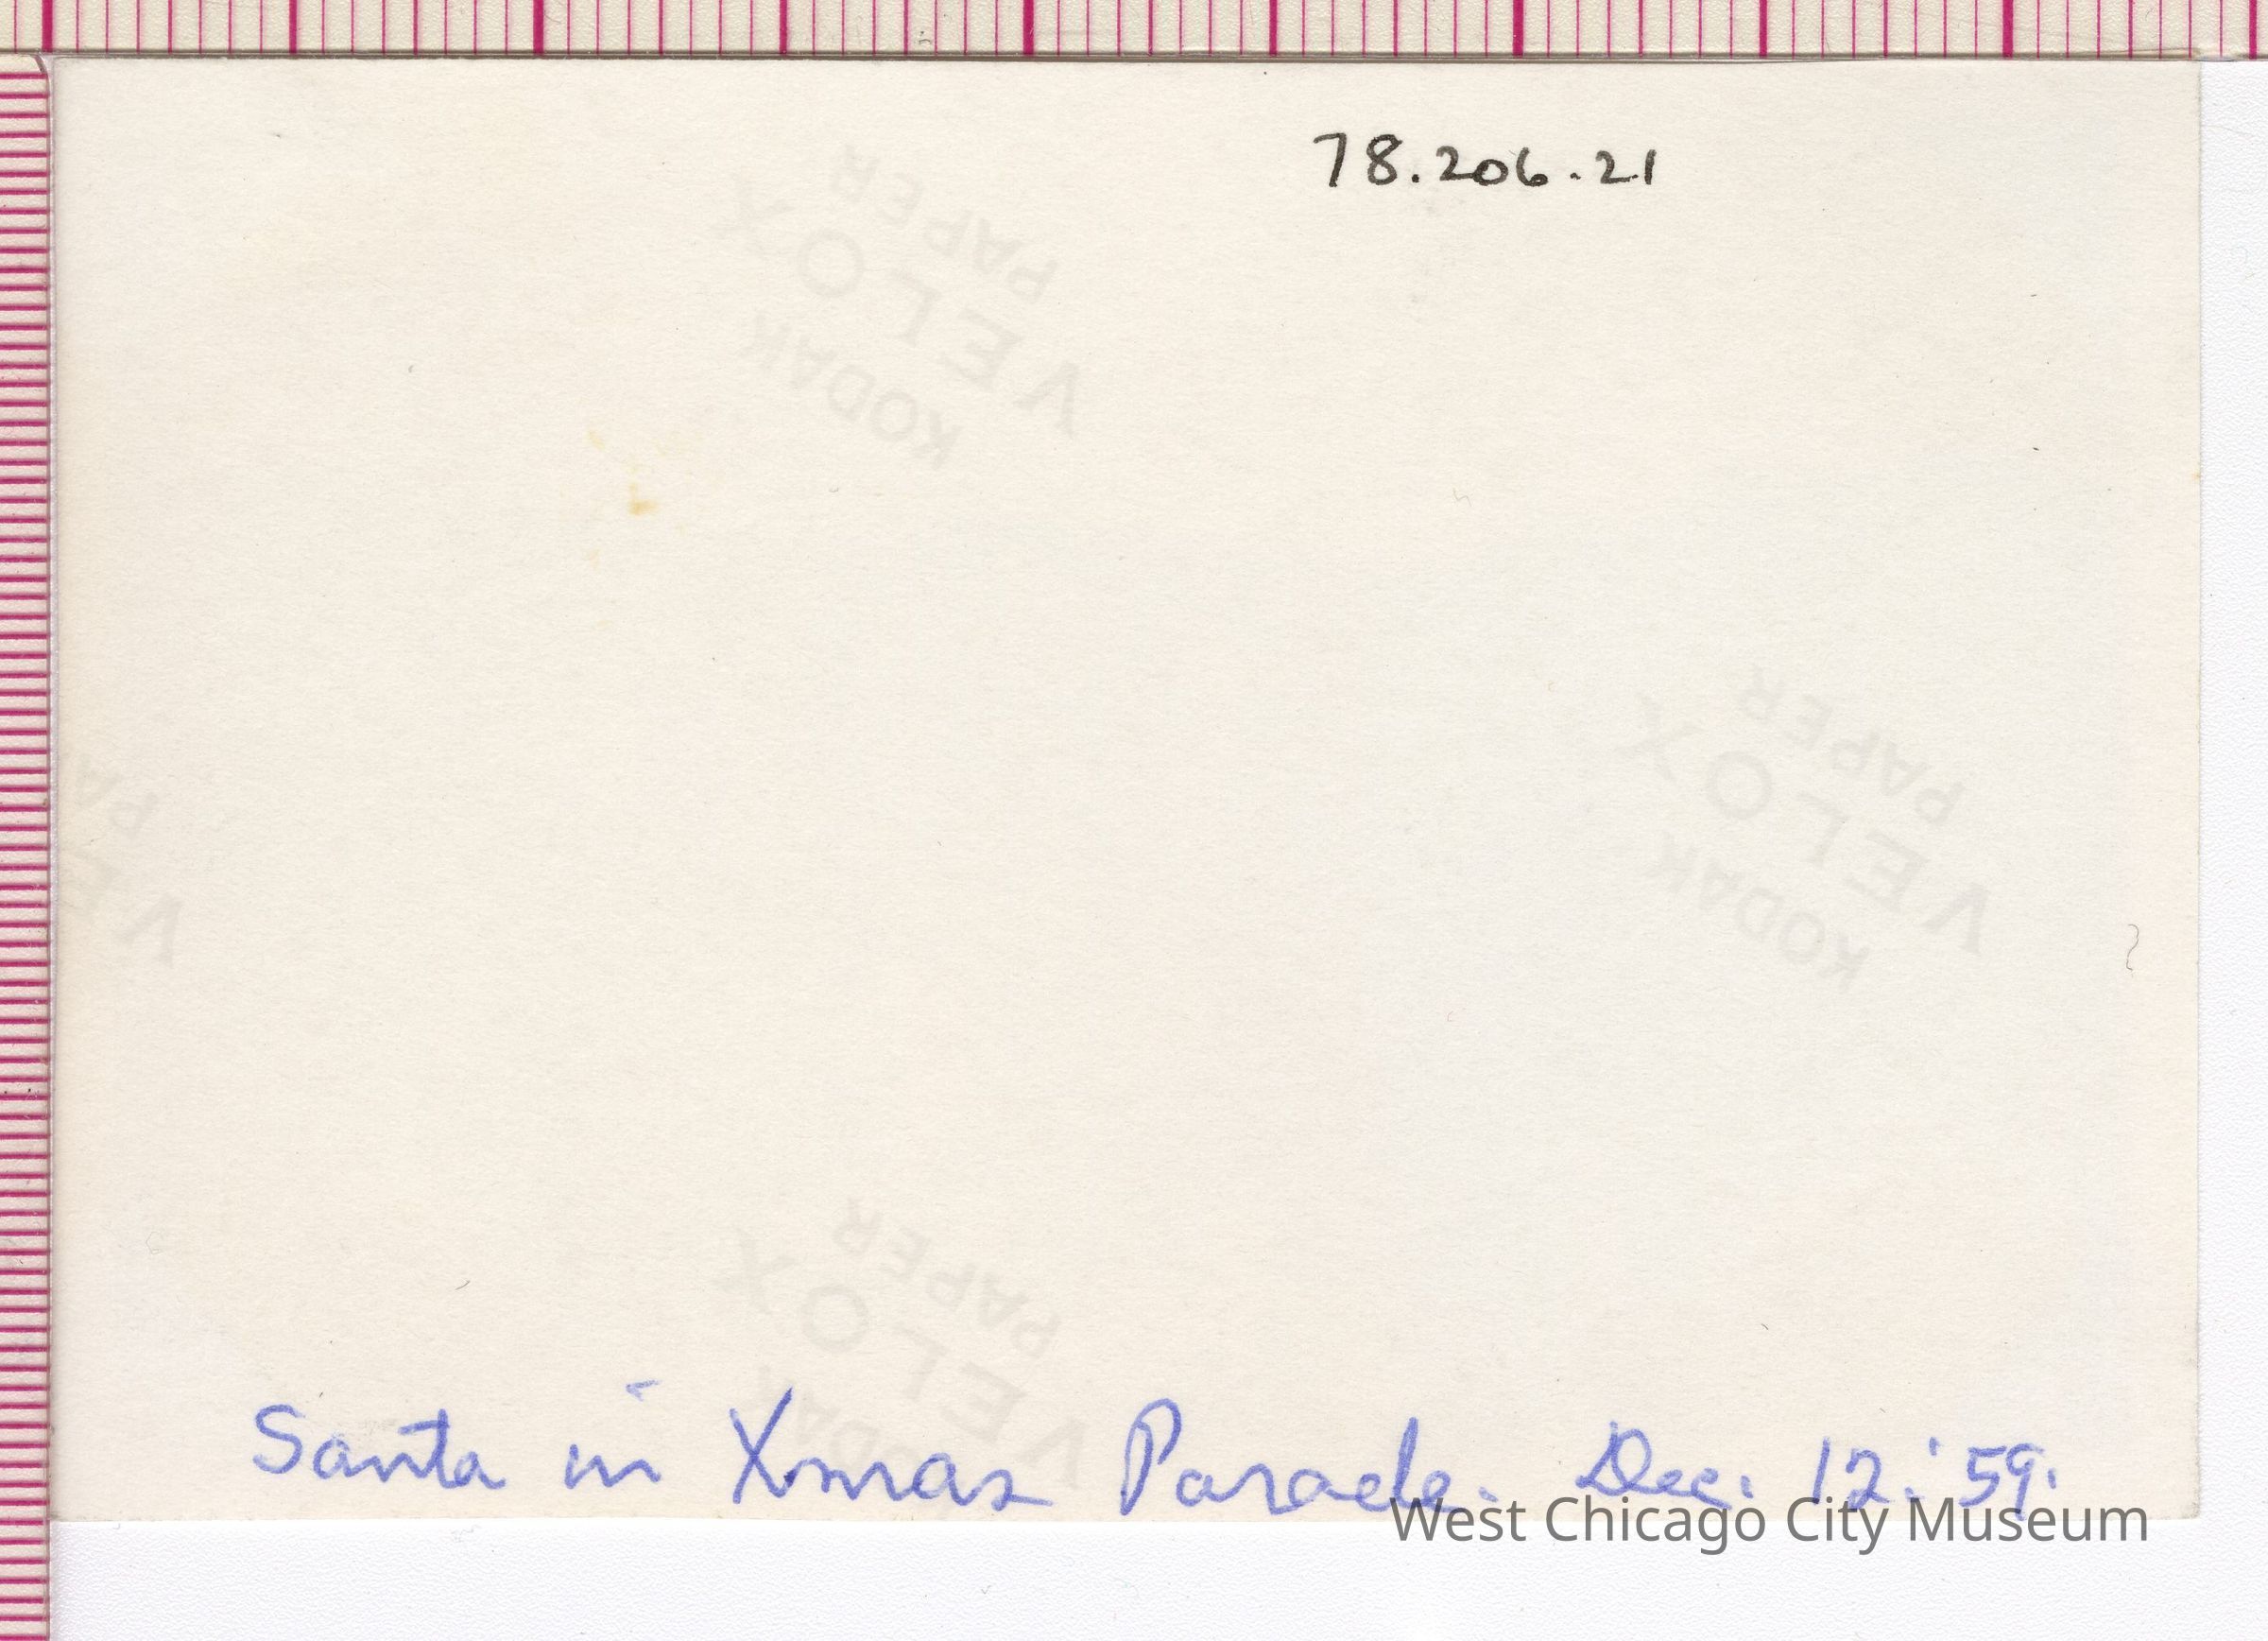 78.206.21
PAPER
VELOX
KODAK
PAPER
VELOX
KODAK
PA
VE
PAPER
VELOX
Santa in Xmas Parade. Dec. 12.'59.
West Chicago City Museum